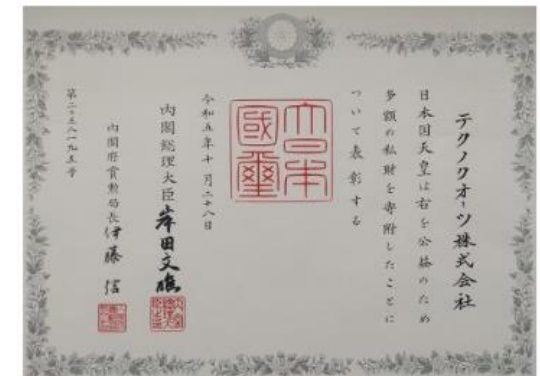 テクノクオーツ株式会社
日本国天皇は右を公益のため
多額の私財を寄附したことに
ついて表彰する
大日本
國璽
令和五年十月二十八日
内閣総理大臣岸田文雄
内閣府賞勲局長伊藤信